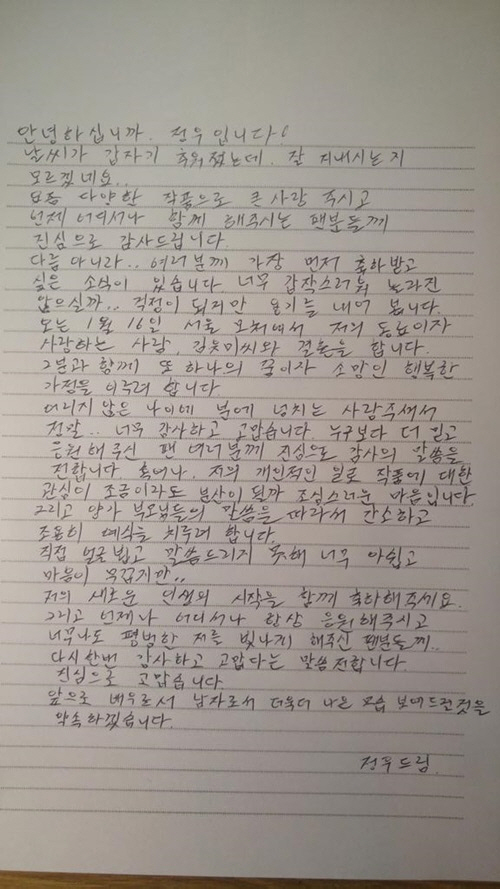 안녕하십니까. 정우입니다!
날씨가 갑자기 추워졌는데. 잘 지내시는지
모르겠네요..
요즘 다양한 작품으로 큰사랑 주시고
언제 어디서나 함께 해주시는 팬분들께
진심으로 감사드립니다.
다름 아니라.. 여러분께 가장 먼저 축하받고
싶은 소식이 있습니다 너무 갑작스러워 놀라진
않으실까.. 걱정이 되지만 용기를 내어 봅니다.
오는 1월 16일 서울 모처에서 저의 동료이자
사랑하는 사람. 김유미씨와 결혼을 합니다.
그분과 함께 또 하나의 꿈이자 소망인 행복한
가정을 이루려 합니다.
어리지 않은 나이에 분에 넘치는 사랑주셔서
정말.. 너무 감사하고 고맙습니다. 누구보다 더 믿고
응원해 주신 팬 여러분께 진심으로 감사의 말씀을
전합니다 혹여나. 저의 개인적인 일로 작품에 대한
관심이 조금이라도 분산이 될까 조심스러운 마음입니다.
그리고 양가 부모님들의 말씀을 따라서 간소하고
조용히 예식을 치루려 합니다.
직접 얼굴뵙고 말씀드리지 못해 너무 아쉽고
마음이 무겁지만..
저의 새로운 인생의 시작을 함께 축하해주세요.
그리고 언제나 어디서나 항상 응원해주시고
너무나도 평범한 저를 빛나게 해주신 팬분들께..
다시한번 감사하고 고맙다는 말씀 전합니다.
진심으로 고맙습니다.
앞으로 배우로서 남자로서 더욱더 나은 모습 보여드릴것을
약속하겠습니다.
정우드림.